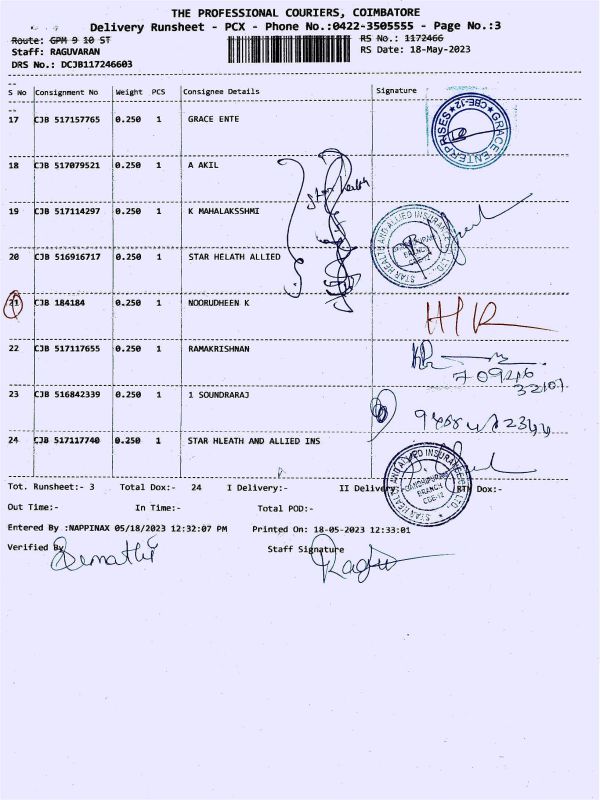 THE PROFESSIONAL COURIERS, COIMBATORE
Delivery Runsheet - PCX - Phone No.:0422-3505555 - Page No.:3
Route: GPM 9 10 ST RS No.: 1172466
Staff: RAGUVARAN RS Date: 18-May-2023
DRS No.: DCJB117246603
S No Consignment No Weight PCS Consignee Details Signature
17 CJB 517157765 0.250 1 GRACE ENTE
GRACE ENTERPRISES ★ CBE-12 ★
18 CJB 517079521 0.250 1 A AKIL
Star Helath
19 CJB 517114297 0.250 1 K MAHALAKSSHMI
20 CJB 516916717 0.250 1 STAR HELATH ALLIED
STAR HEALTH AND ALLIED INSURANCE LTD. BRANCH CBE-12
21 CJB 184184 0.250 1 NOORUDHEEN K
22 CJB 517117655 0.250 1 RAMAKRISHNAN
70946
32107
23 CJB 516842339 0.250 1 1 SOUNDRARAJ
24 CJB 517117740 0.250 1 STAR HLEATH AND ALLIED INS
STAR HEALTH AND ALLIED INSURANCE LTD. BRANCH CBE-12
Tot. Runsheet:- 3 Total Dox:- 24 I Delivery:- II Delivery: RTN Dox:-
Out Time:- In Time:- Total POD:-
Entered By :NAPPINAX 05/18/2023 12:32:07 PM Printed On: 18-05-2023 12:33:01
Verified By Staff Signature
Ragu